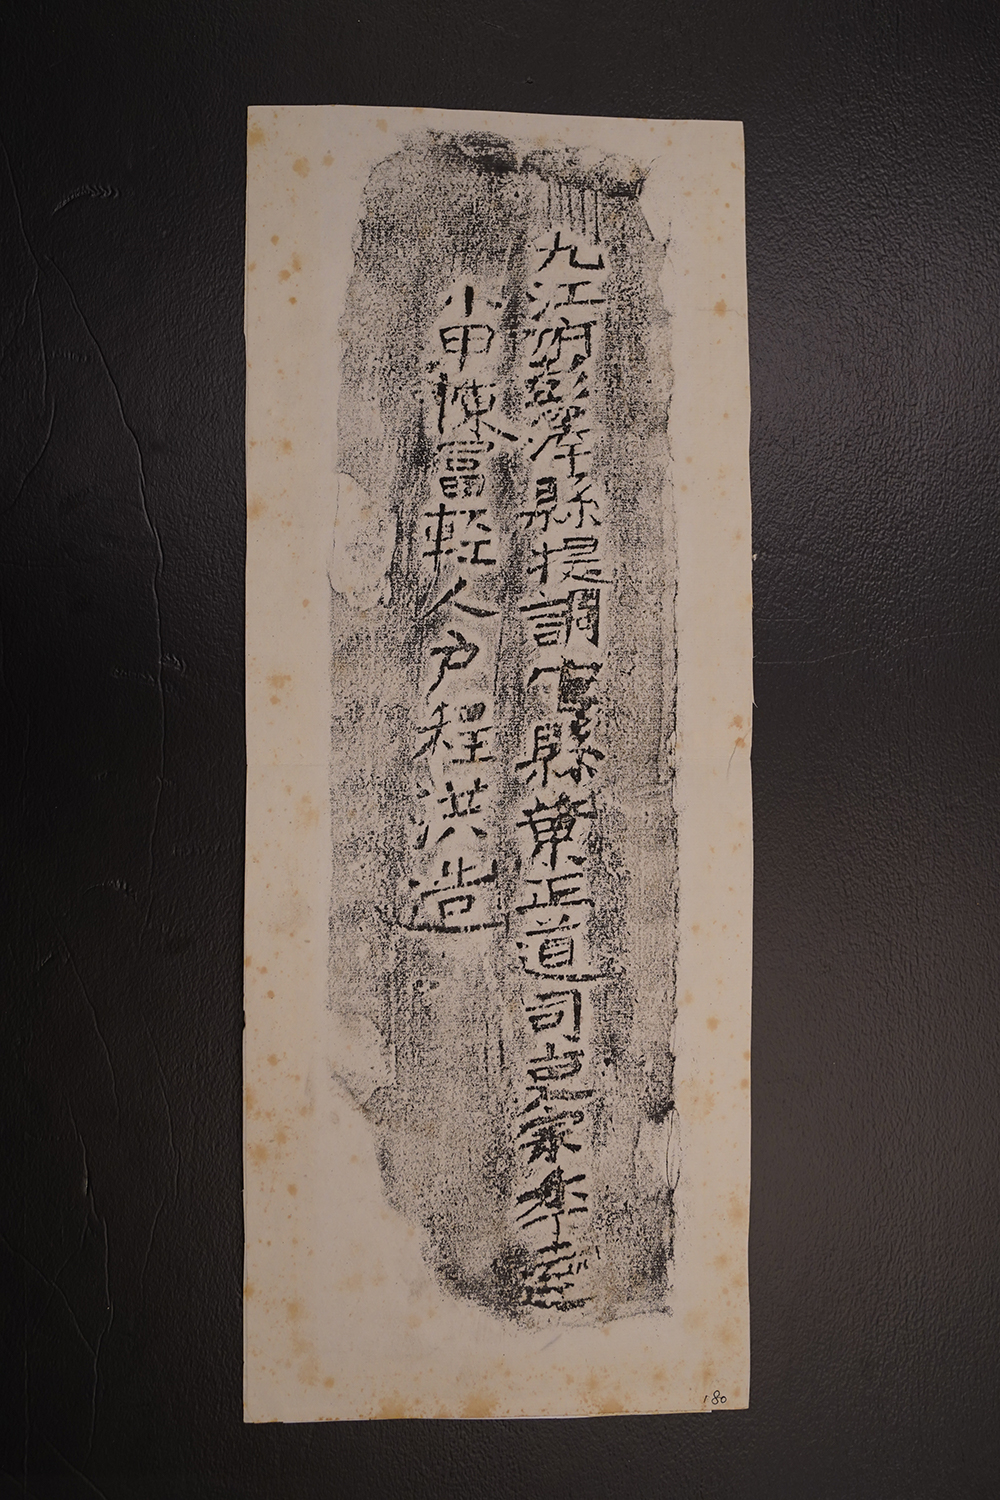 九江府彭澤縣提調官縣葉正道司吏
小甲陳富輕人戶程洪造
180